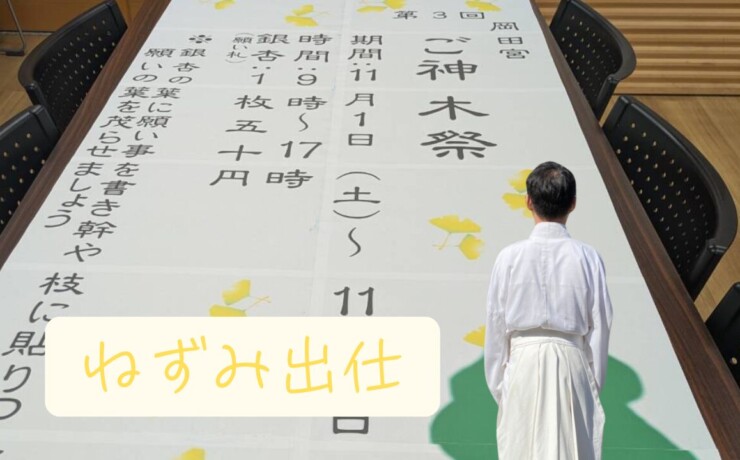 第3回
岡田宮
ご神木祭
期間:11月1日(土)~11日
時間:9時~17時
銀杏:1枚五十円
(願い札)
※銀杏の葉に願い事を書き幹や枝に貼りつ
願いの葉を茂らせましょう
ねずみ出仕